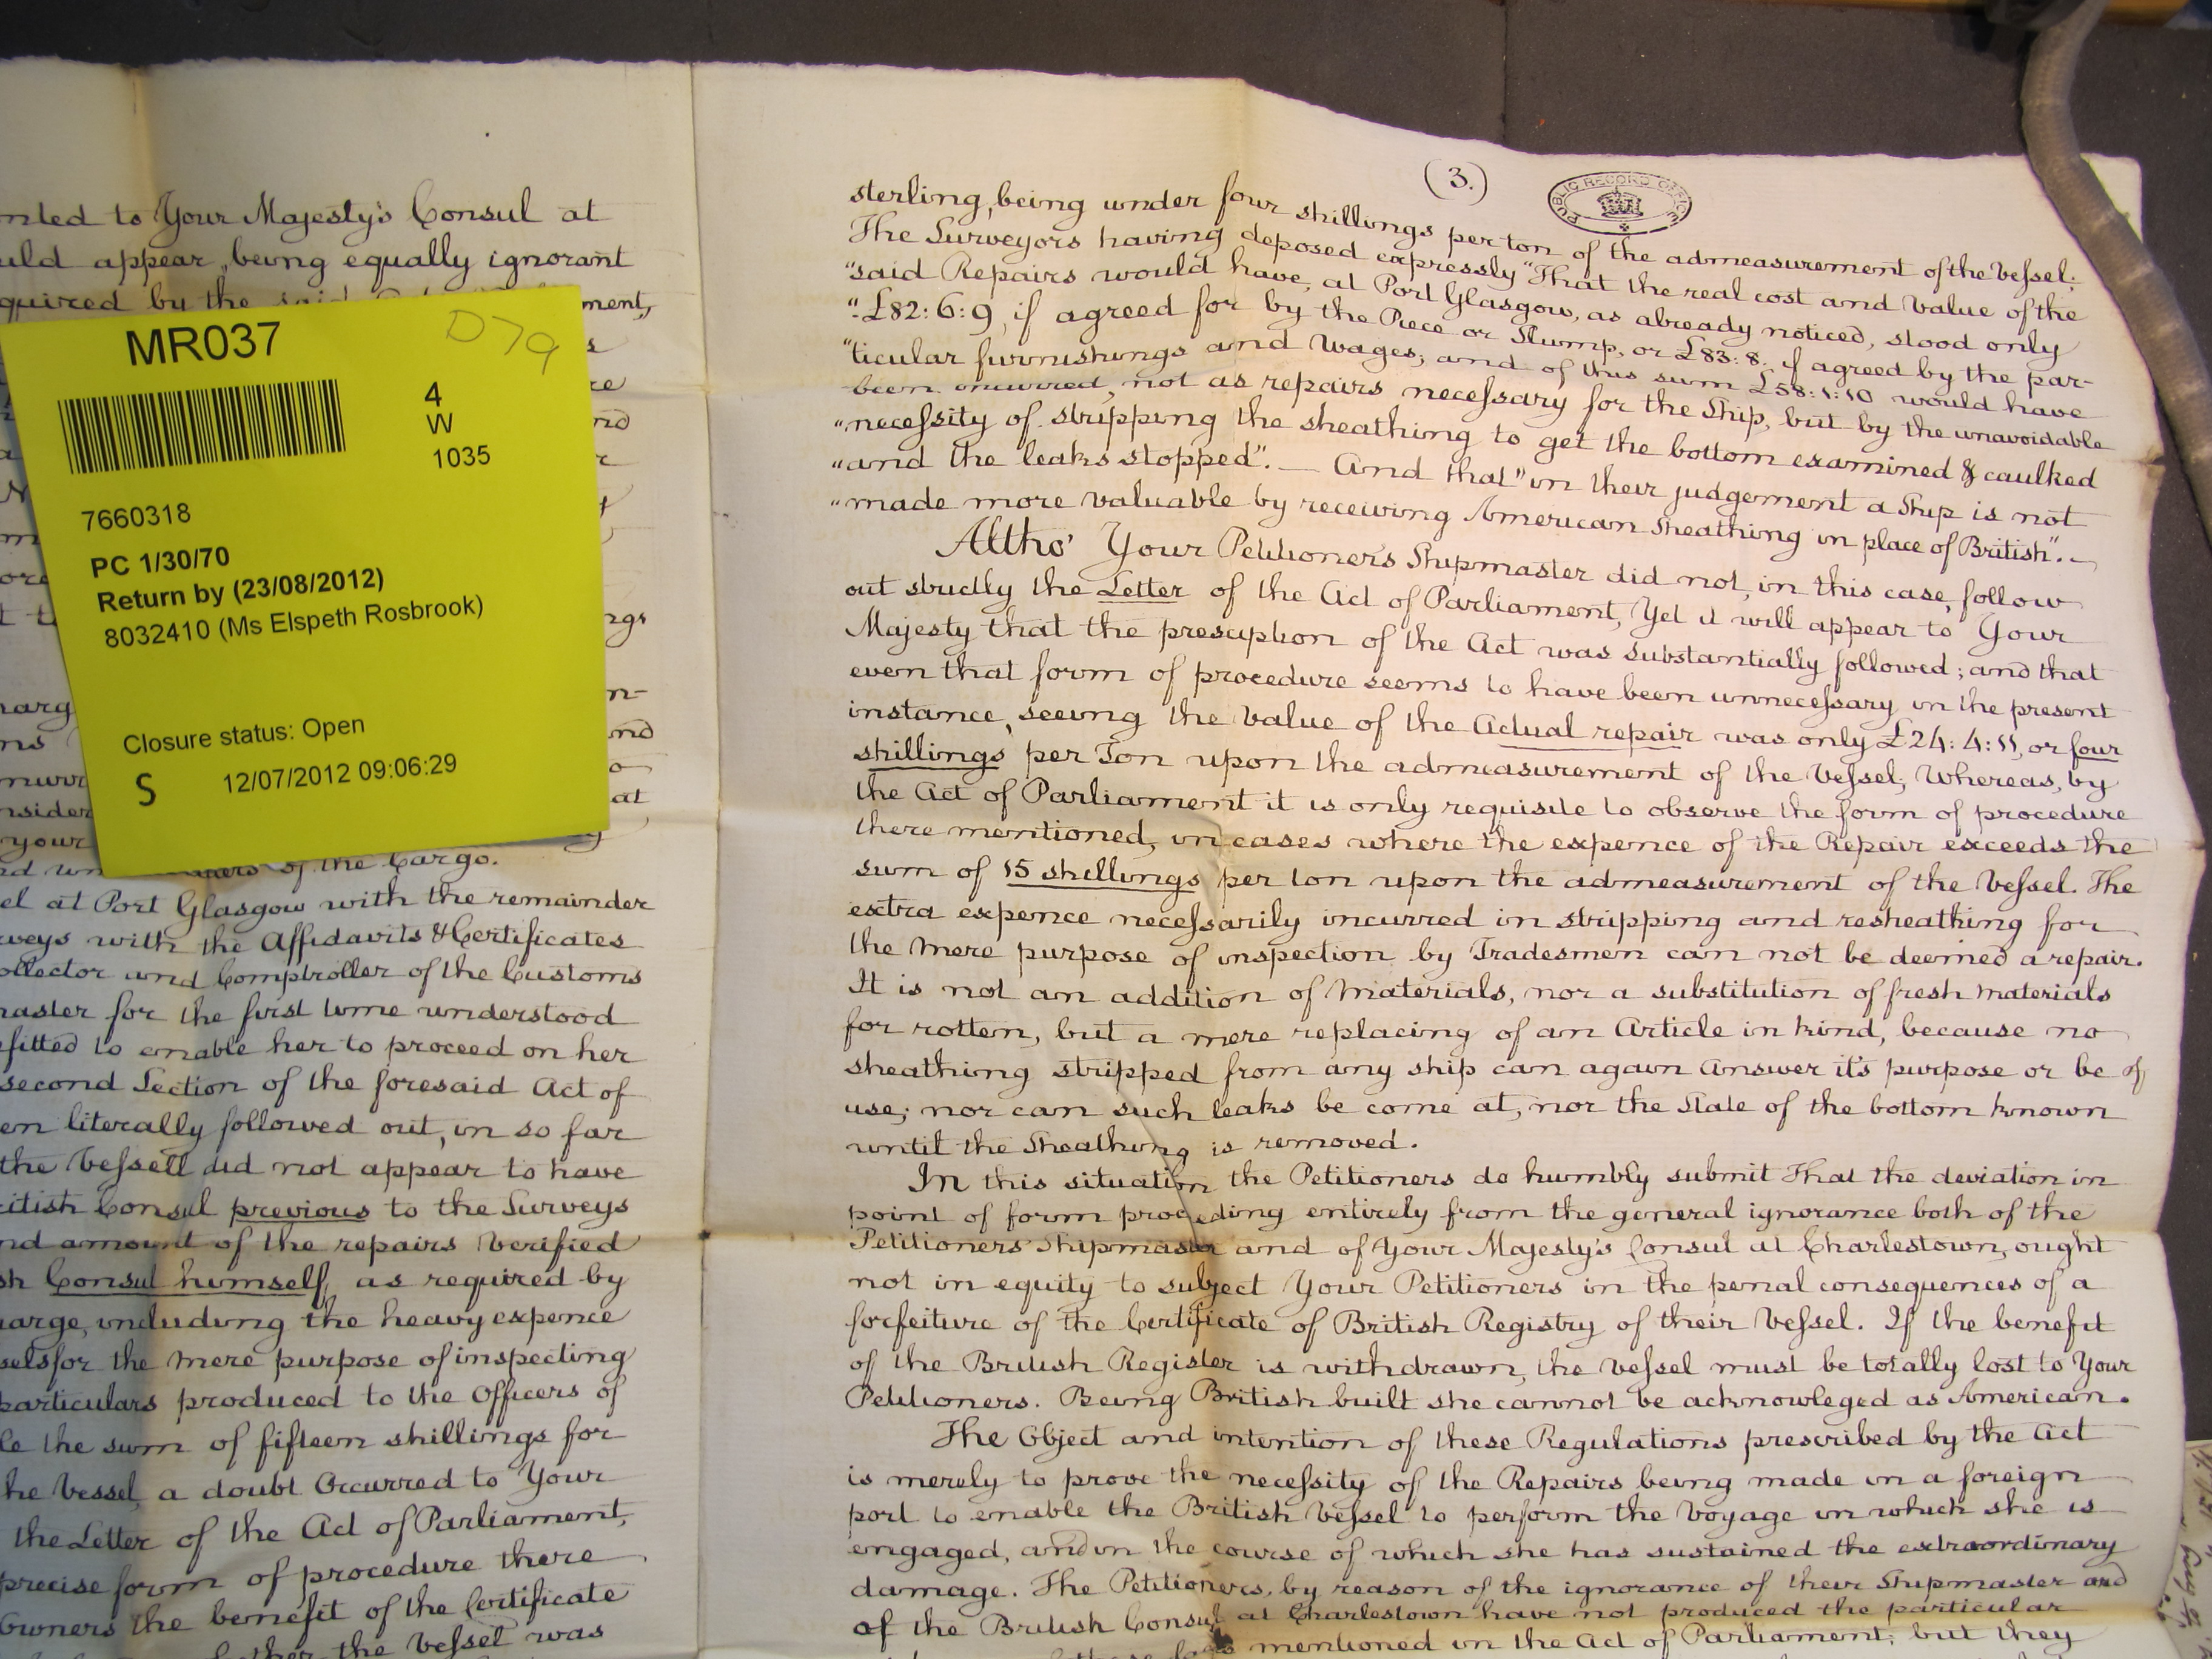 nted to Your Majesty's Consul at
uld appear, being equally ignorant
quired by the
ment,
MR037
D79
4
W
1035
7660318
PC 1/30/70
Return by (23/08/2012)
8032410 (Ms Elspeth Rosbrook)
Closure status: Open
S 12/07/2012 09:06:29
of the Cargo.
el at Port Glasgow with the remainder
rveys with the Affidavits & Certificates
ollector and Comptroller of the Customs
master for the first time understood
fitted to enable her to proceed on her
second Section of the foresaid Act of
en literally followed out, in so far
the Vessell did not appear to have
ritish Consul previous to the Surveys
nd amount of the repairs Verified
sh Consul himself, as required by
harge, including the heavy expence
sels for the mere purpose of inspecting
particulars produced to the Officers of
le the sum of fifteen shillings for
he Vessel, a doubt Occurred to Your
the Letter of the Act of Parliament,
precise form of procedure there
Owners the benefit of the Certificate
the Vessel was
(3.)
PUBLIC RECORD OFFICE
sterling, being under four shillings per ton of the admeasurement of the Vessel;
The Surveyors having deposed expressly "That the real cost and Value of the
"said Repairs would have, at Port Glasgow, as already noticed, stood only
"£82:6:9, if agreed for by the Piece or Slump, or £83:8. if agreed by the par-
"ticular furnishings and Wages; and of this sum £58:1:10 would have
been incurred, not as repairs necessary for the Ship, but by the unavoidable
"necessity of stripping the sheathing to get the bottom examined & caulked
"and the leaks stopped". — And that "in their judgement a Ship is not
"made more valuable by receiving American Sheathing in place of British". —
Altho' Your Petitioners Shipmaster did not, in this case, follow
out strictly the Letter of the Act of Parliament, Yet it will appear to Your
Majesty that the prescription of the Act was substantially followed; and that
even that form of procedure seems to have been unnecessary in the present
instance, seeing the Value of the Actual repair was only £24:4:11, or four
shillings per Ton upon the admeasurement of the Vessel; Whereas, by
the Act of Parliament it is only requisite to observe the form of procedure
there mentioned, in cases where the expence of the Repair exceeds the
sum of 15 shillings per ton upon the admeasurement of the Vessel. The
extra expence necessarily incurred in stripping and resheathing for
the mere purpose of inspection by Tradesmen can not be deemed a repair.
It is not an addition of Materials, nor a substitution of fresh Materials
for rotten, but a mere replacing of an Article in kind, because no
sheathing stripped from any ship can again Answer it's purpose or be of
use; nor can such leaks be come at, nor the State of the bottom known
until the Sheathing is removed.
In this situation the Petitioners do humbly submit That the deviation in
point of form proceding entirely from the general ignorance both of the
Petitioners' Shipmaster and of Your Majesty's Consul at Charlestown, ought
not in equity to subject Your Petitioners in the penal consequences of a
forfeiture of the Certificate of British Registry of their Vessel. If the benefit
of the British Register is withdrawn, the Vessel must be totally lost to Your
Petitioners. Being British built she cannot be acknowleged as American.
The Object and intention of these Regulations prescribed by the Act
is merely to prove the necessity of the Repairs being made in a foreign
port to enable the British Vessel to perform the Voyage in which she is
engaged, and in the course of which she has sustained the extraordinary
damage. The Petitioners, by reason of the ignorance of their Shipmaster and
of the British Consul at Charlestown have not produced the particular
mentioned in the Act of Parliament; but they